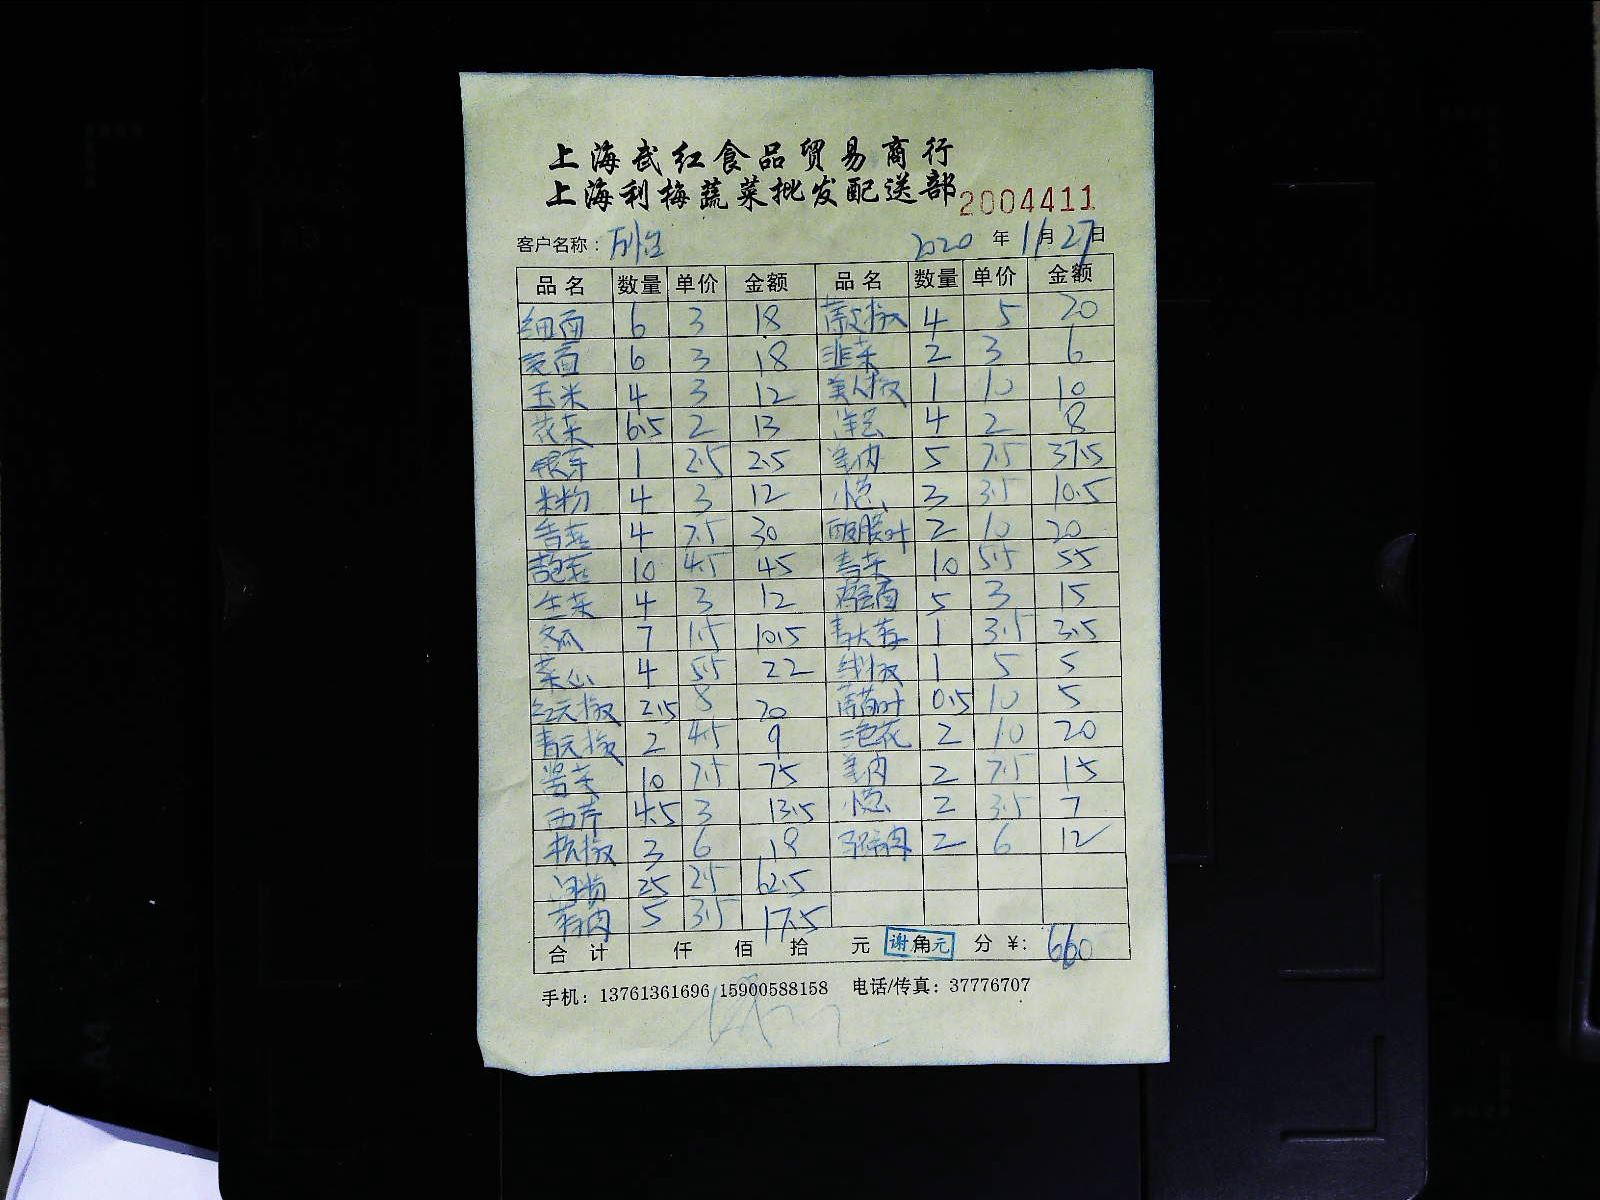 上海武红食品贸易商行
上海利梅蔬菜批发配送部 2004411
客户名称: 2020 年 11 月 27 日
品名 数量 单价 金额 品名 数量 单价 金额
细面 6 3 18 4 5 20
6 3 18 韭菜 2 3 6
玉米 4 3 12 美人椒 1 10 10
花菜 6.5 2 13 洋葱 4 2 8
银芽 1 2.5 2.5 5 7.5 37.5
米粉 4 3 12 小葱 3 3.5 10.5
香菜 4 7.5 30 2 10 20
10 4.5 45 青菜 10 5.5 55
生菜 4 3 12 鸡蛋面 5 3 15
冬瓜 7 1.5 10.5 1 3.5 3.5
菜心 4 5.5 22 线椒 1 5 5
红元椒 2.5 8 20 0.5 10 5
青元椒 2 4.5 9 2 10 20
10 7.5 75 2 7.5 15
西芹 4.5 3 13.5 小葱 2 3.5 7
杭椒 3 6 18 2 6 12
25 2.5 62.5
5 3.5 17.5
合计 仟 佰 拾 元 谢角元 分 ¥: 660
手机: 13761361696 15900588158 电话/传真: 37776707